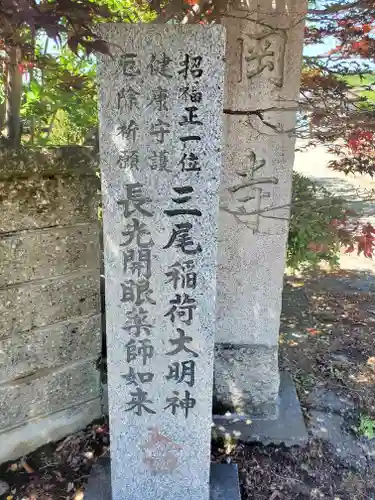 招福正一位
三尾稲荷大明神
健康守護
厄除祈願
長光開眼薬師如来
岡
寺